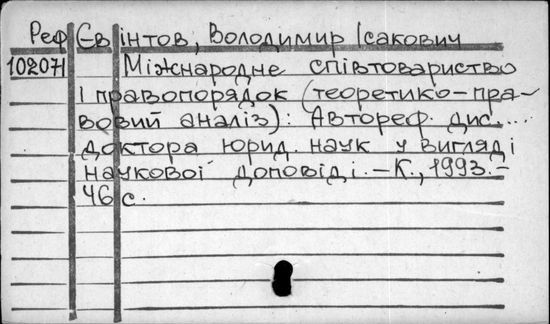 Реф Євінтов, Володимир Ісакович
102071 Міжнародне співтовариство
і правопорядок (теоретико-пра-
вовий аналіз): Автореф. дис....
доктора юрид. наук у вигляді
наукової доповіді. – К., 1993. –
46 с.